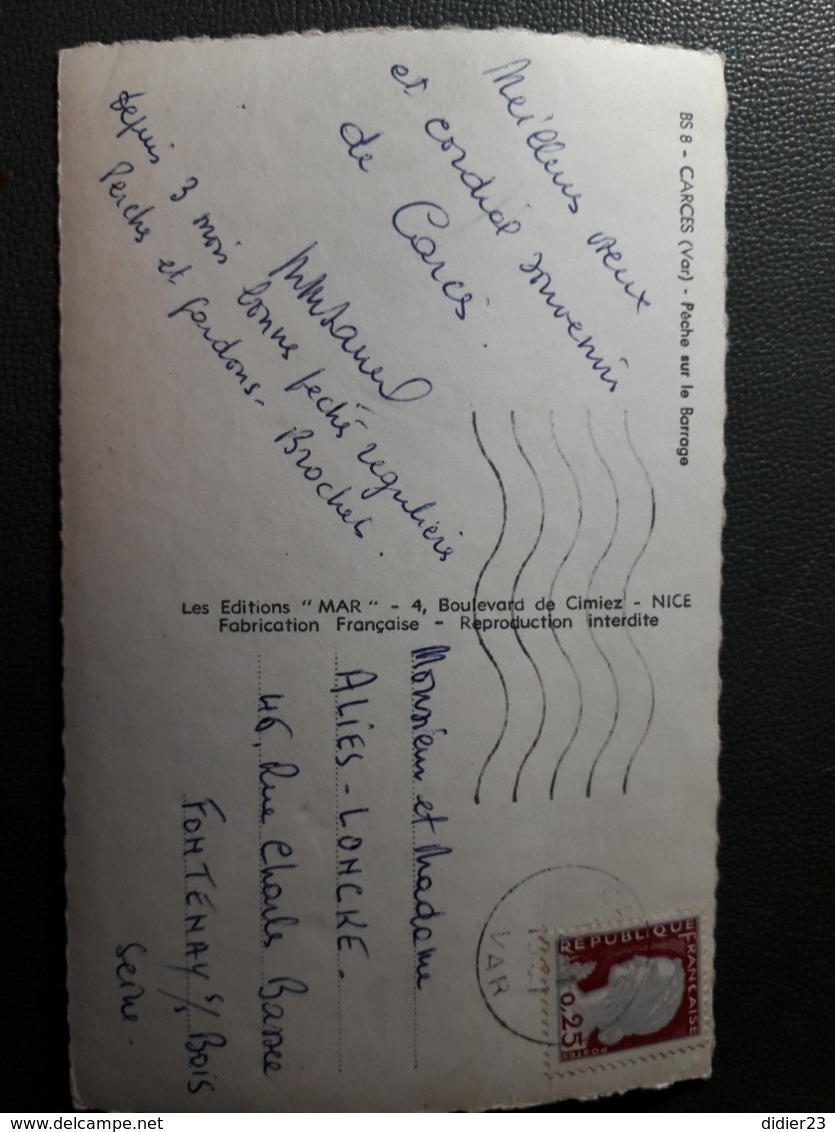 BS 8 - CARCES (Var) - Pêche sur le Barrage
Meilleurs vœux
et cordial souvenir
de Carcès.
depuis 3 mois bonnes pêches regulières
Perches et gardons - Brochets.
Les Editions "MAR" - 4, Boulevard de Cimiez - NICE
Fabrication Française - Reproduction interdite
Monsieur et Madame
ALIES - LONCKE.
46, Rue Charles Bassée
FONTENAY s/s Bois
Seine.
VAR
REPUBLIQUE FRANCAISE
0,25
POSTES
didier23